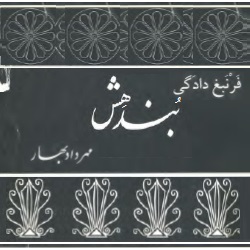 فَرْنبَغ دادَگی
بُندهِش
مهرداد بهار